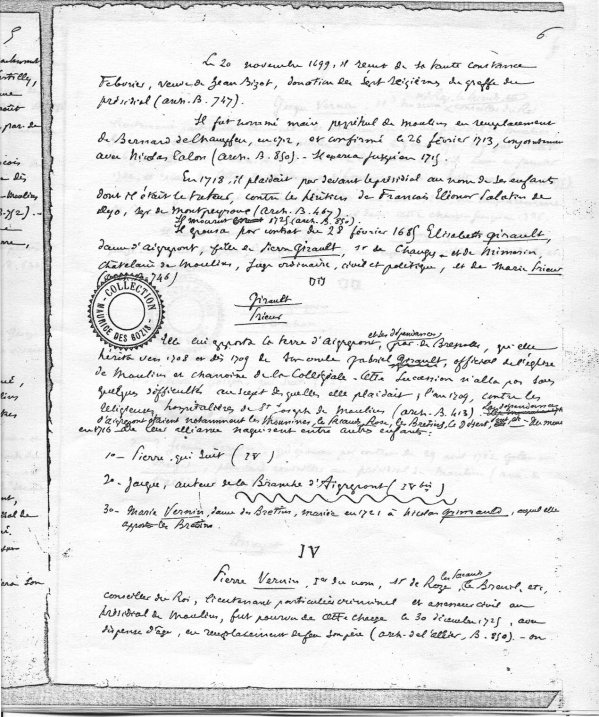 6
Le 20 novembre 1699, il reçut de sa tante Constance
Febvrier, veuve de Jean Bizot, donation des sept seizièmes du greffe du
présidial (arch. B. 747).
Il fut nommé maire perpétuel de Moulins en remplacement
de Bernard de Champfeu, en 1712, et confirmé le 26 février 1713, conjointement
avec Nicolas Calon (arch. B. 850). - Il exerça jusqu'en 1715.
En 1718, il plaidait par devant le présidial au nom de ses enfants
dont il était le tuteur, contre les héritiers de François Eléonor Palatin de
Dyo, sgr de Montpeyroux (arch. B. 467).
Il mourut 1725 (arch. B. 850).
Il épousa par contrat du 28 février 1685 Elisabeth Girault,
dame d'Aigrepont, fille de Pierre Girault, sr de Changy et de Mimorin,
Châtelain de Moulins, juge ordinaire, civil et politique, et de Marie Prieur
B. 746)
Girault
Prieur
COLLECTION
MAURICE DES BOZIN
et ses dépendances
Elle lui apporta la terre d'Aigrepont, par. de Bressolles, qu'elle
hérita vers 1708 ou dès 1709 de son oncle Gabriel Girault, official de l'église
de Moulins et chanoine de la Collégiale. - Cette succession n'alla pas sans
quelques difficultés au sujet desquelles elle plaidait, l'an 1709, contre les
religieuses hospitalières de St Joseph de Moulins (arch. B. 413) Les dépendances
d'Aigrepont étaient notamment les Mounines, le Roze, les Brétins, le
en 1716 De leur alliance naquirent entre autres enfants:
1o - Pierre, qui suit (IV)
2o - Jacques, auteur de la Branche d'Aigrepont (IV bis)
3o - Marie Vernin, dame des Brétins, mariée en 1721 à Nicolas Grimauld, auquel elle
apporta les Brétins.
IV
Pierre Vernin, du nom, sr de Roze, le Breuil, etc,
conseiller du Roi, lieutenant particulier criminel et assesseur civil au
présidial de Moulins, fut pourvu de cette charge le 30 décembre 1725, avec
dispense d'âge, en remplacement de feu son père (arch. de l'Allier, B. 850). - on